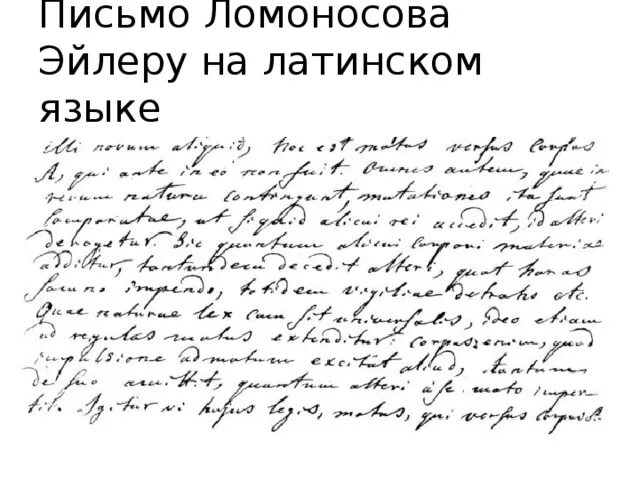 Письмо Ломоносова
Эйлеру на латинском
языке
illi novum aliquid, hoc est motus versus corpus
A, qui ante in eo non fuit. Omnes autem, quae in
rerum natura contingunt, mutationes ita sunt
comparatae, ut si quid alicui rei accedit, id alteri
derogetur. Sic quantum alicui corpori materiae
additur, tantundem decedit alteri, quot horas
somno impendo, totidem vigiliae detraho etc.
Quae naturae lex cum sit universalis, ideo etiam
ad regulas motus extenditur: corpus enim, quod
impulsione ad motum excitat aliud, tantum
de suo amittit, quantum alteri a se moto imper-
tit. Igitur vi hujus legis, motus, qui versus corpus